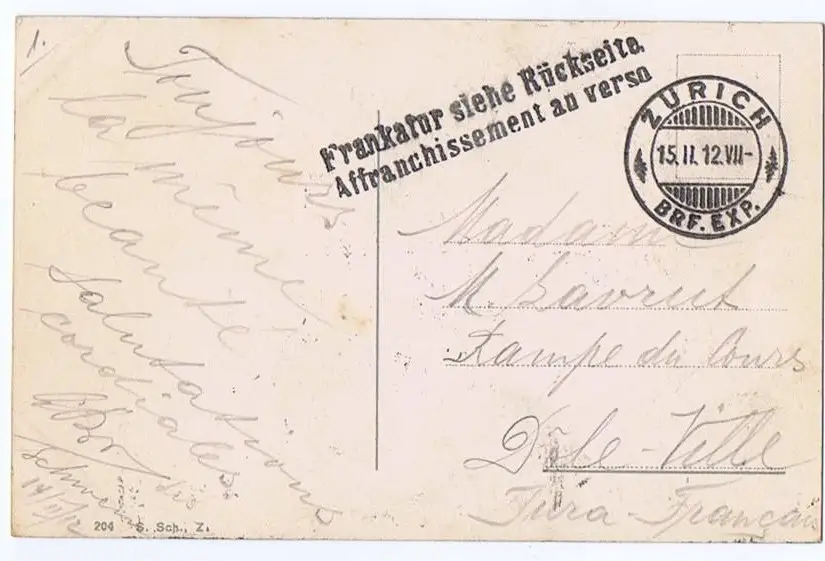 1.
Toujours
la même
beauté
Salutations
cordiales
14/II/12
204 S. Sch., Z.
Frankatur siehe Rückseite.
Affranchissement au verso
ZÜRICH
15.II.12.VII-
BRF. EXP.
Madame
M. Lavrut
Rampe du Cours
Dôle-Ville
Jura-Français